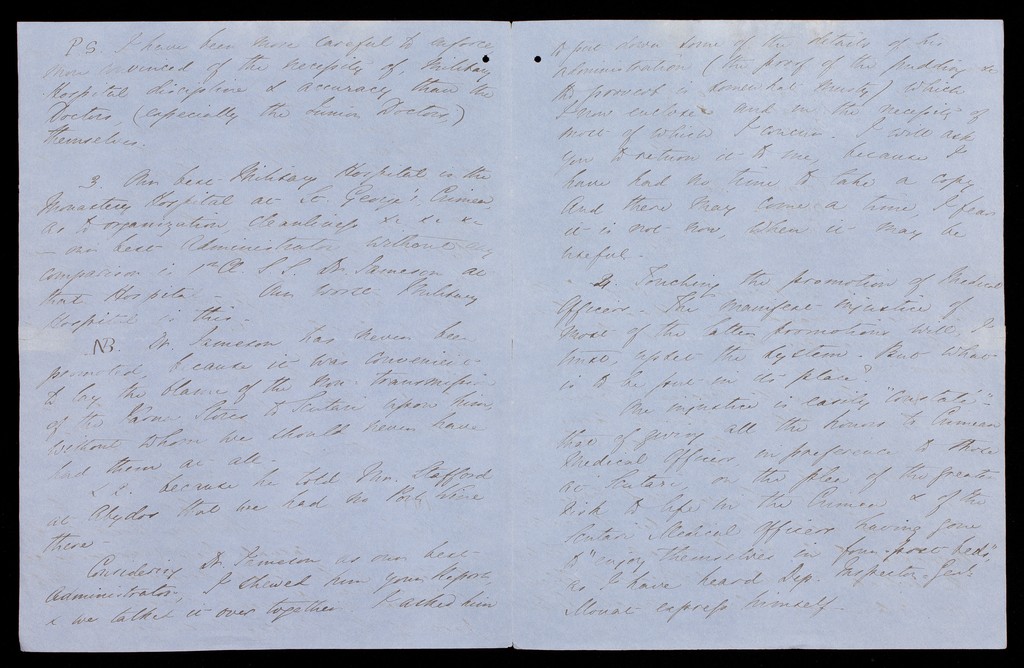 PS I have been more careful to enforce,
more convinced of the necessity of, Military
Hospital discipline & accuracy than the
Doctors, (especially the Junior Doctors,)
themselves.
3. Our best Military Hospital is the
Monastery Hospital at St. George's, Crimea
as to organization, cleanliness &c &c &c
- our best Administrator without any
comparison is 1st Cl. S.S. Dr. Jameson at
that Hospital - Our worst Military
Hospital is this.
NB. Dr. Jameson has never been
promoted, because it was convenient
to lay the blame of the non-transmission
of the Varna Stores to Scutari upon him,
without whom we should never have
had them at all -
& 2. because he told Mr. Stafford
at Abydos that we had no Port Wine
there -
Considering Dr. Jameson as our best
Administrator, I shewed him your Report,
& we talked it over together. I asked him
to put down some of the details of his
Administration (the proof of the pudding &c
the proverb is somewhat musty) which
I now enclose and in the necessity of
most of which I concur. I will ask
you to return it to me, because I
have had no time to take a copy
And there may come a time, I fear
it is not now, when it may be
useful.
4. Touching the promotion of Medical
Officers - The manifest injustice of
most of the latter promotions will, I
trust, upset the system. But what
is to be put in its place?
One injustice is easily "constaté" -
that of giving all the honors to Crimean
Medical Officers in preference to those
at Scutari, on the plea of the greater
risk to life in the Crimea & of the
Scutari Medical Officers having gone
to "enjoy themselves in four-post beds"
as I have heard Dep. Inspector Genl.
Mouat express himself.